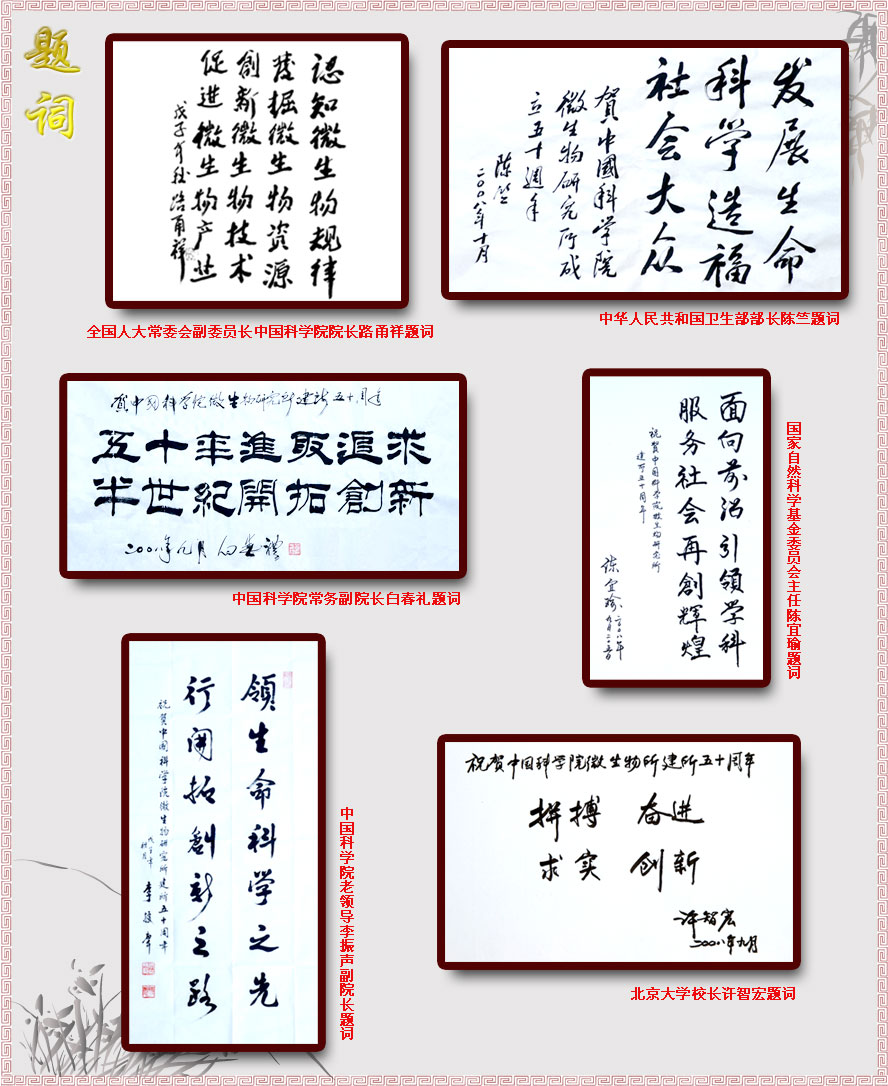 题
词
認知微生物規律
發掘微生物资源
創新微生物技术
促进微生物产业
戊子年秋路甬祥
全国人大常委会副委员长中国科学院院长路甬祥题词
发展生命
科学造福
社会大众
贺中國科学院
微生物研究所成
立五十週年
陈竺
二〇〇八年十月
中华人民共和国卫生部部长陈竺题词
贺中国科学院微生物研究所建所五十周年
五十年進取追求
半世紀開拓創新
二〇〇八年九月 白春礼
中国科学院常务副院长白春礼题词
面向前沿引領学科
服务社会再創輝煌
祝贺中国科学院微生物研究所
建所五十周年
陈宜瑜
二〇〇八年
九月二十五日
国家自然科学基金委员会主任陈宜瑜题词
领生命科学之先
行開拓創新之路
祝贺中国科学院微生物研究所建所五十周年
戊子年
秋月
李振声
中国科学院老领导李振声副院长题词
祝贺中国科学院微生物所建所五十周年
拼搏 奋进
求实 创新
许智宏
二〇〇八年九月
北京大学校长许智宏题词